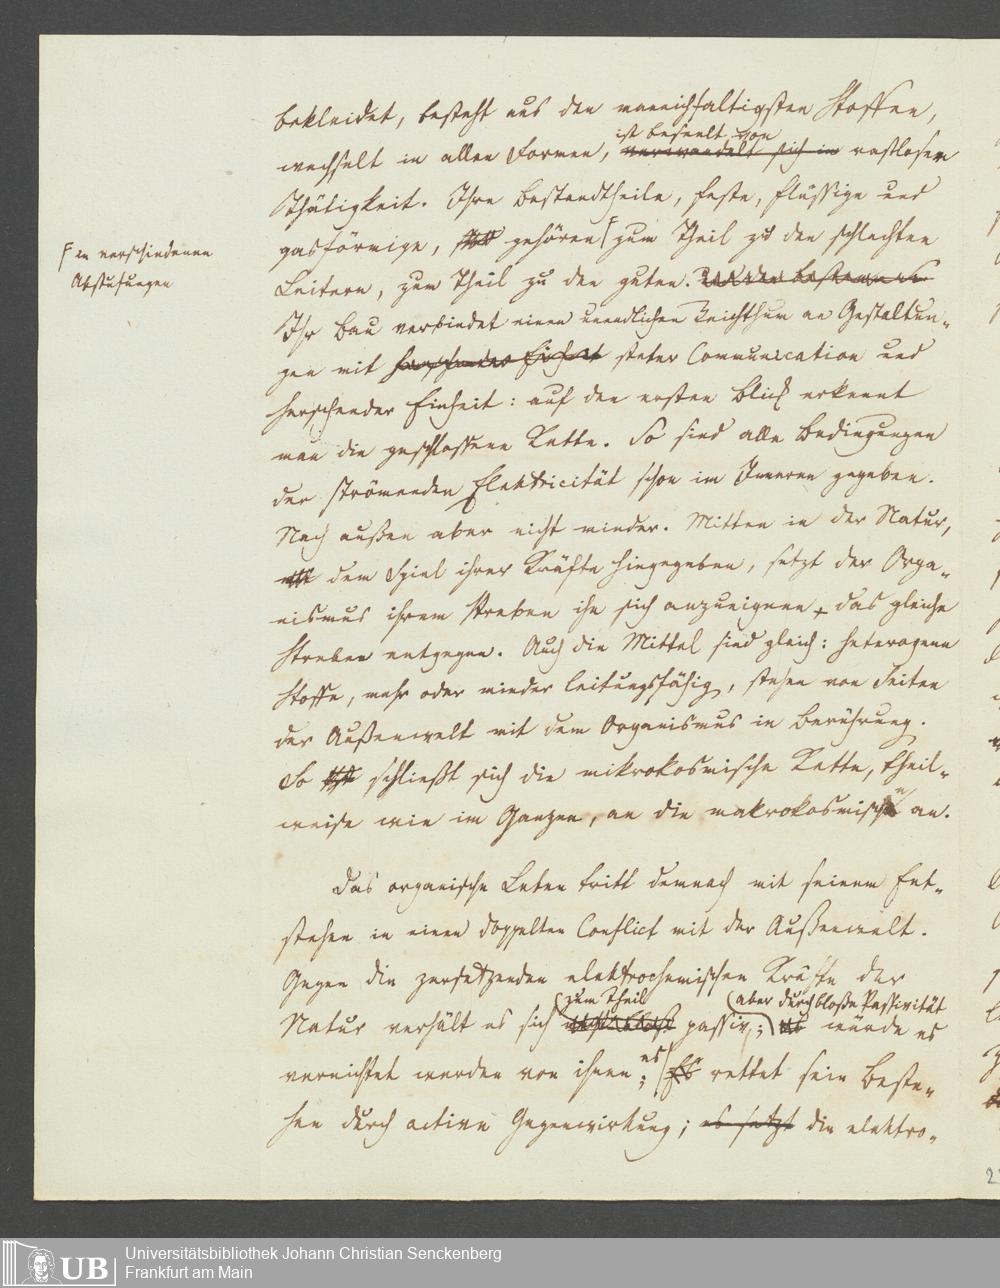 bekleidet, besteht aus den mannichfaltigsten Stoffen,
ist beseelt von
wechselt in allen Formen, verwandelt sich in rastloser
Thätigkeit. Ihre Bestandtheile, feste, flüssige und
gasförmige, gehören zum Theil zu den schlechten
in verschiedenen
Abstufungen
Leitern, zum Theil zu den guten.
Ihr Bau verbindet einen unendlichen Reichthum an Gestaltun-
gen mit herrschender Einheit steter Communication und
herrschender Einheit: auf den ersten Blick erkennt
man die geschlossene Kette. So sind alle Bedingungen
der strömenden Elektricität schon im Inneren gegeben.
Nach außen aber nicht minder. Mitten in der Natur,
dem Spiel ihrer Kräfte hingegeben, setzt der Orga-
nismus ihrem Streben ihn sich anzueignen, das gleiche
Streben entgegen. Auch die Mittel sind gleich: heterogene
Stoffe, mehr oder minder leitungsfähig, stehen von Seiten
der Außenwelt mit dem Organismus in Berührung.
So schließt sich die mikrokosmische Kette, theil-
weise wie im Ganzen, an die makrokosmische an.
Das organische Leben tritt demnach mit seinem Ent-
stehen in einen doppelten Conflict mit der Außenwelt.
Gegen die zersetzenden elektrochemischen Kräfte der
zum Theil aber durch bloße Passivität
Natur verhält es sich passiv; würde es
vernichtet werden von ihnen; es rettet sein Beste-
hen durch active Gegenwirkung; es setzt die elektro-
Universitätsbibliothek Johann Christian Senckenberg
Frankfurt am Main
UB